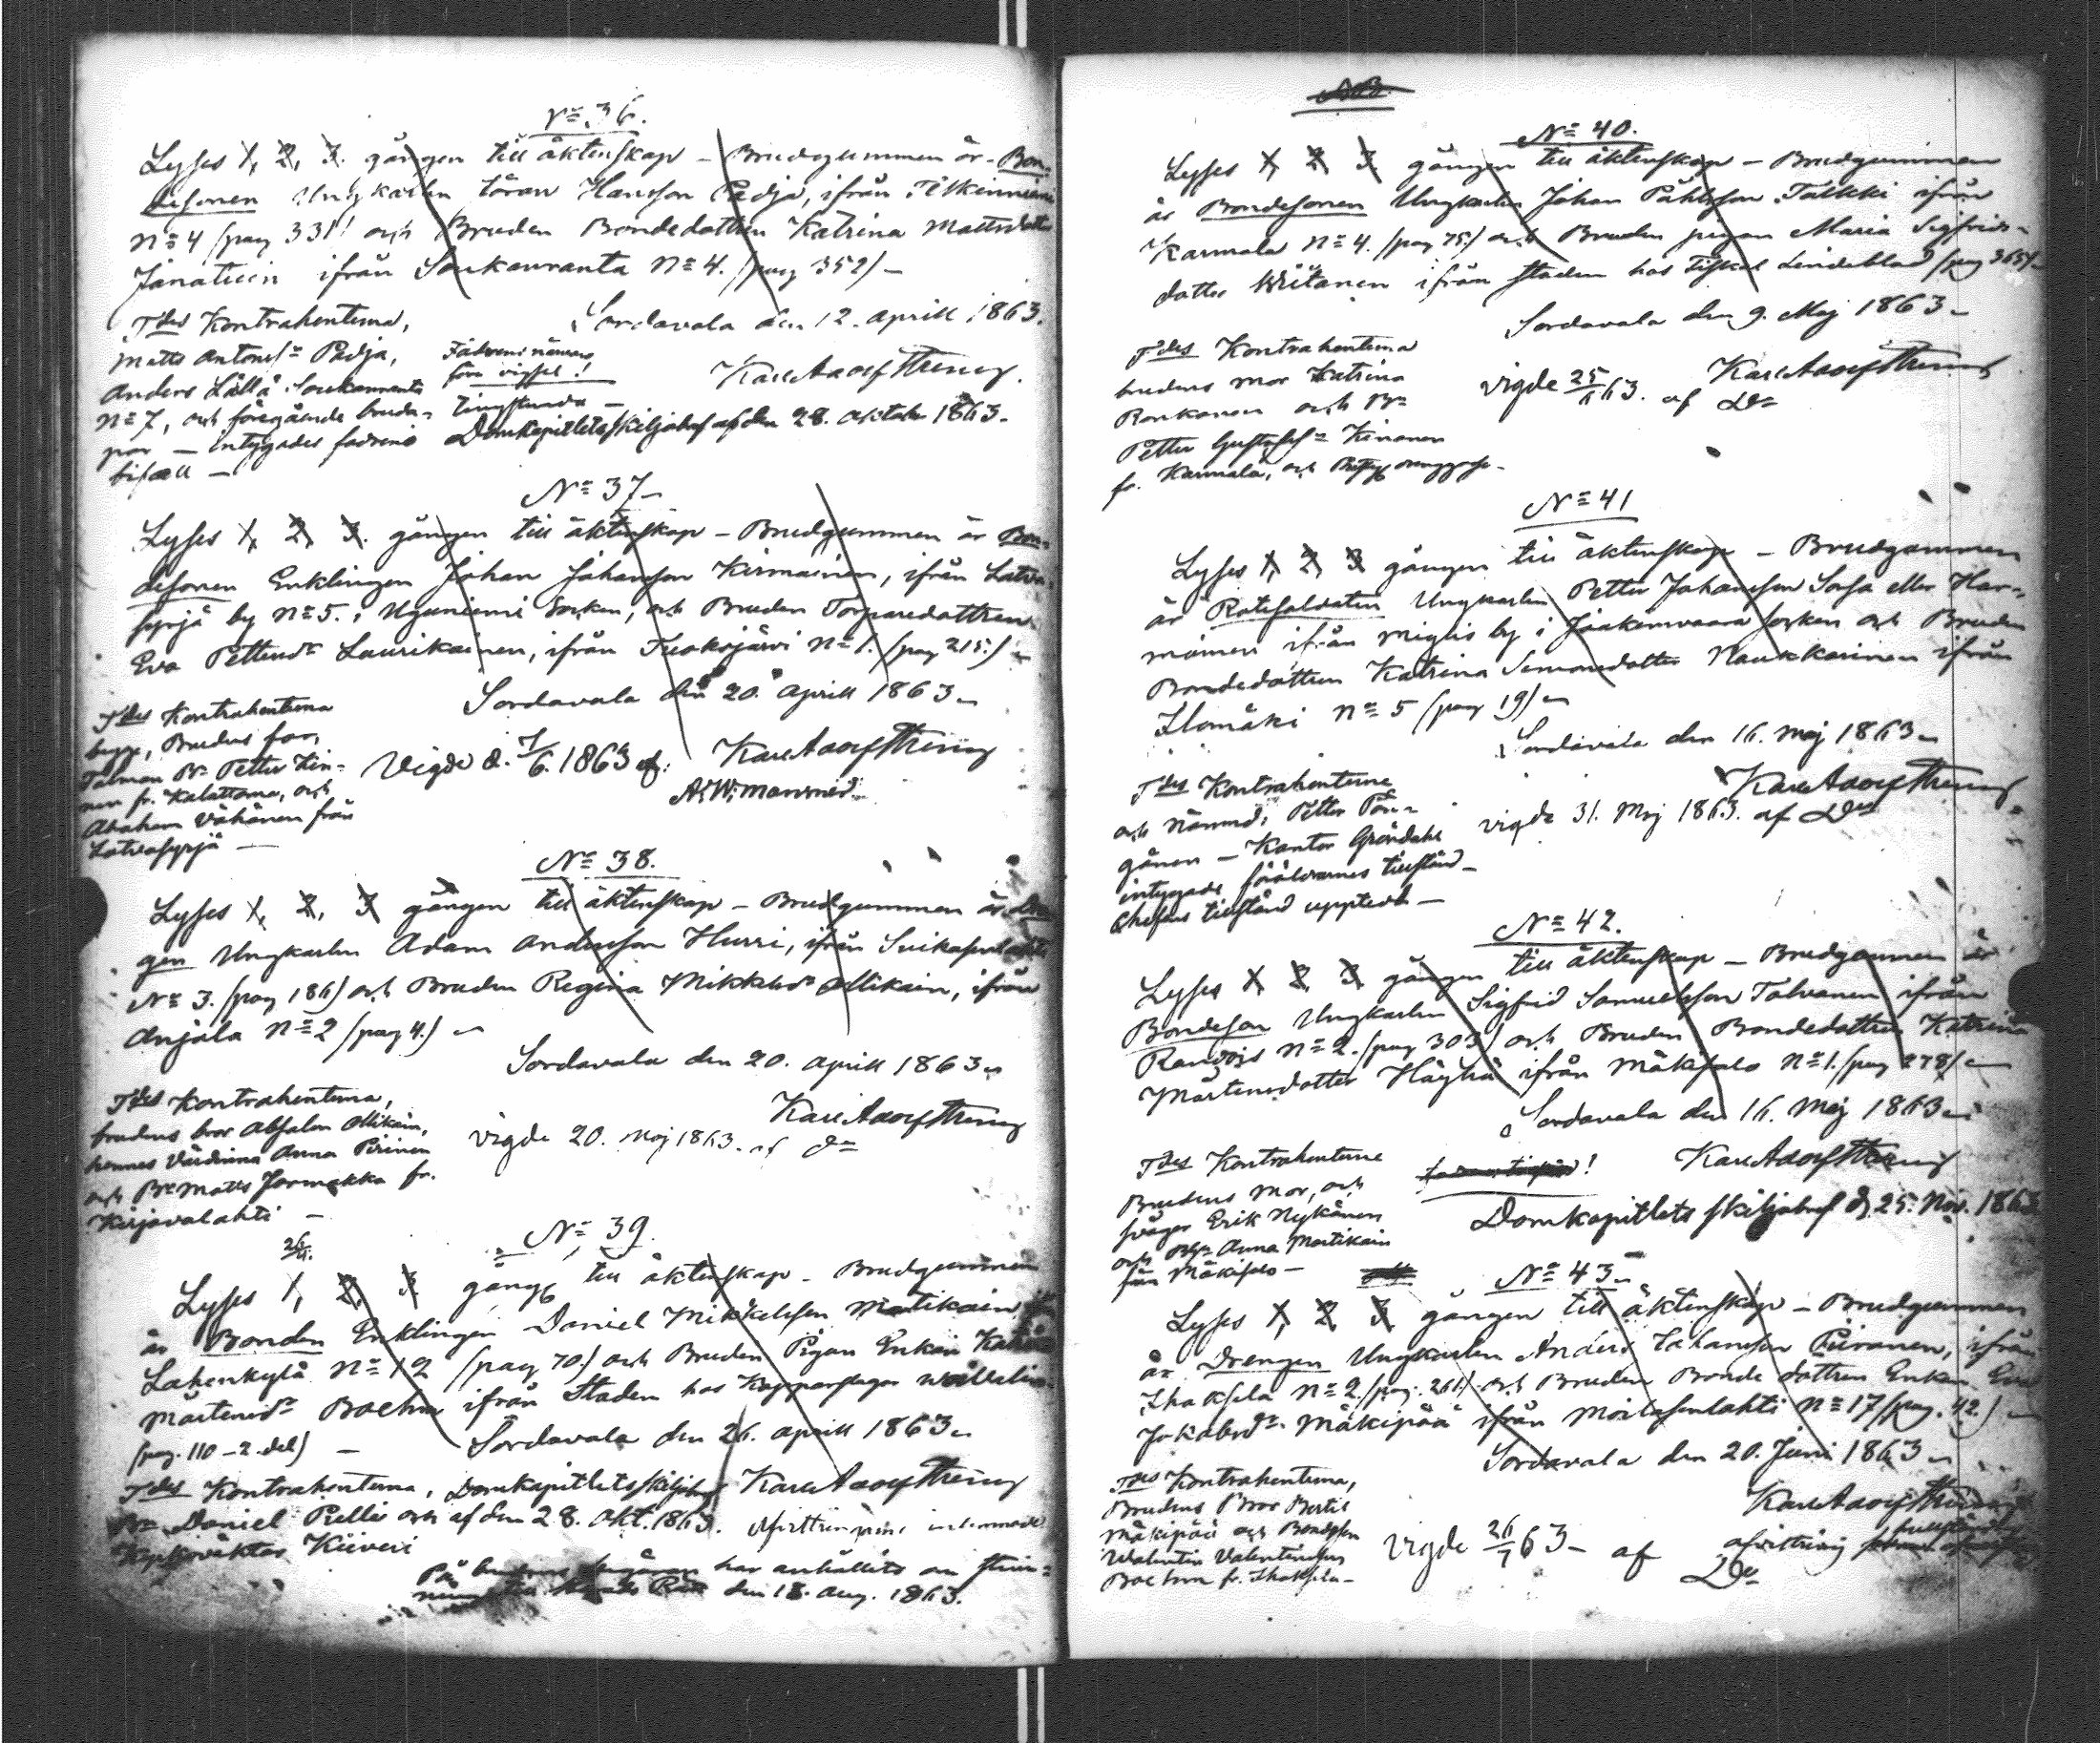 Nº 36.
Lyses 1, 2, 3. gången till äktenskap – Brudgummen är Bon-
desonen Ungkarlen Göran Hansson Padja, ifrån
Nº 4 (pag 331) och Bruden Bondedottren Katrina Mattsdotter
Janatuin ifrån Soukanranta Nº 4. (pag 352) –
Sordavala den 12. April 1863.
T des Kontrahenterna,
Matts Antons n Padja,
Anders Lällä Soukanranta
Nº 7, och föregående brude-
par – intygades fadrens
bifall –
Karl Adolf Thring.
Domkapitlets skiljobref af den 28. Oktober 1863.
Nº 37
Lyses 1, 2, 3. gången till äktenskap – Brudgummen är Bon-
desonen Enklingen Johan Johansson Kirmainen, ifrån Latva-
syrjä by Nº 5. i Uguniemi Socken, och Bruden Torparedottren
Eva Pettersdr Laurikainen, ifrån Tuoksjärvi Nº 1. (pag 215.) –
Sordavala den 20. April 1863 –
T des Kontrahenterna
Brudens far,
Talman Bn Petter
fr. Kalattoma, och
Abraham Vähänen från
Latvasyrjä –
Vigde d. 7/6. 1863 af:
Karl Adolf Thring
Nº 38.
Lyses 1, 2, 3 gången till äktenskap – Brudgummen är Dren-
gen Ungkarlen Adam Andersson Hurri, ifrån
Nº 3. (pag 186) och Bruden Regina Mikkelsdr Ollikain, ifrån
Anjala Nº 2 (pag 4.) –
Sordavala den 20. April 1863 –
T des Kontrahenterna,
brudens bror Absalon Ollikain,
hennes Värdinna Anna Pirinen
och Bn Matts Jormakka fr.
Kirjavalahti –
vigde 20. Maj 1863. af Dn
Karl Adolf Thring
Nº 39.
26/4.
Lyses 1, 2, 3 gång till äktenskap – Brudgummen
är Bonden Enklingen Daniel Mikkelsson Martikain
Lahenkylä Nº 12 (pag 70.) och Bruden Pigan Enkan Katrina
Mårtensdr Boehm ifrån Staden hos Kopparslagar
(pag. 110 – 2. del) –
Sordavala den 26. April 1863 –
T des Kontrahenterna,
Domkapitlets skiljobref
Karl Adolf Thring
Bn Daniel Relli och
af den 28. Okt. 1863.
Kyrkoväktar Kiiveri
På har anhållits om
den 18. Aug. 1863.
Nº 40.
Lyses 1, 2, 3 gången till äktenskap – Brudgummen
är Bondesonen Ungkarlen Johan Påhlsson Tålkki ifrån
Karmala Nº 4. (pag 75.) och Bruden pigan Maria Sigfrids-
dotter Wiitanen ifrån staden hos Fiskal Lindeblad (pag 365) –
Sordavala den 9. Maj 1863 –
T des Kontrahenterna
brudens mor Katrina
Ronkanen och Bn
Petter Gustafsn Kinanen
fr. Karmala, och
vigde 25/5 63. af Dn
Karl Adolf Thring
Nº 41
Lyses 1, 2, 3 gången till äktenskap – Brudgummen
är Rotesoldaten Ungkarlen Petter Johansson Sorsa eller Har-
moinen ifrån Miglis by i Jaakimvaara Socken och Bruden
Bondedottren Katrina Simonsdotter Naukkarinen ifrån
Ilomäki Nº 5 (pag 19) –
Sordavala den 16. Maj 1863 –
T des Kontrahenterne
och Nämnd. Petter Pön-
gänen – Kantor Gröndahl
intygade föräldrarnes tillstånd –
Chefens tillstånd uppteedt –
vigde 31. Maj 1863. af Dn
Karl Adolf Thring
Nº 42.
Lyses 1, 2, 3 gången till äktenskap – Brudgummen är
Bondeson Ungkarlen Sigfrid Samuelsson Tolvanen ifrån
Rangois Nº 2. (pag 303) och Bruden Bondedottren Katrina
Mårtensdotter Häyhä ifrån Mäkisalo Nº 1. (pag 278) –
Sordavala den 16. Maj 1863 –
T des Kontrahenterne
Brudens mor, och
svåger Erik Nykänen
och Anna Martikain
från Mäkisalo –
Karl Adolf Thring
Domkapitlets skiljobref d. 25. Nov. 1863
Nº 43
Lyses 1, 2, 3 gången till äktenskap – Brudgummen
är Drengen Ungkarlen Anders Johansson Piiranen, ifrån
Ihaksela Nº 2. (pag. 261.) och Bruden Bondedottren Enkan Eva
Jakobsdr. Mäkipää ifrån Moilasenlahti Nº 17 (pag. 42.) –
Sordavala den 20. Juni 1863 –
T des Kontrahenterna,
Brudens Bror Bertil
Mäkipää och Bondeson
Valentin Valentinsson
Boehm fr. Ihaksela –
Vigde 26/7 63 – af Dn
Karl Adolf Thring